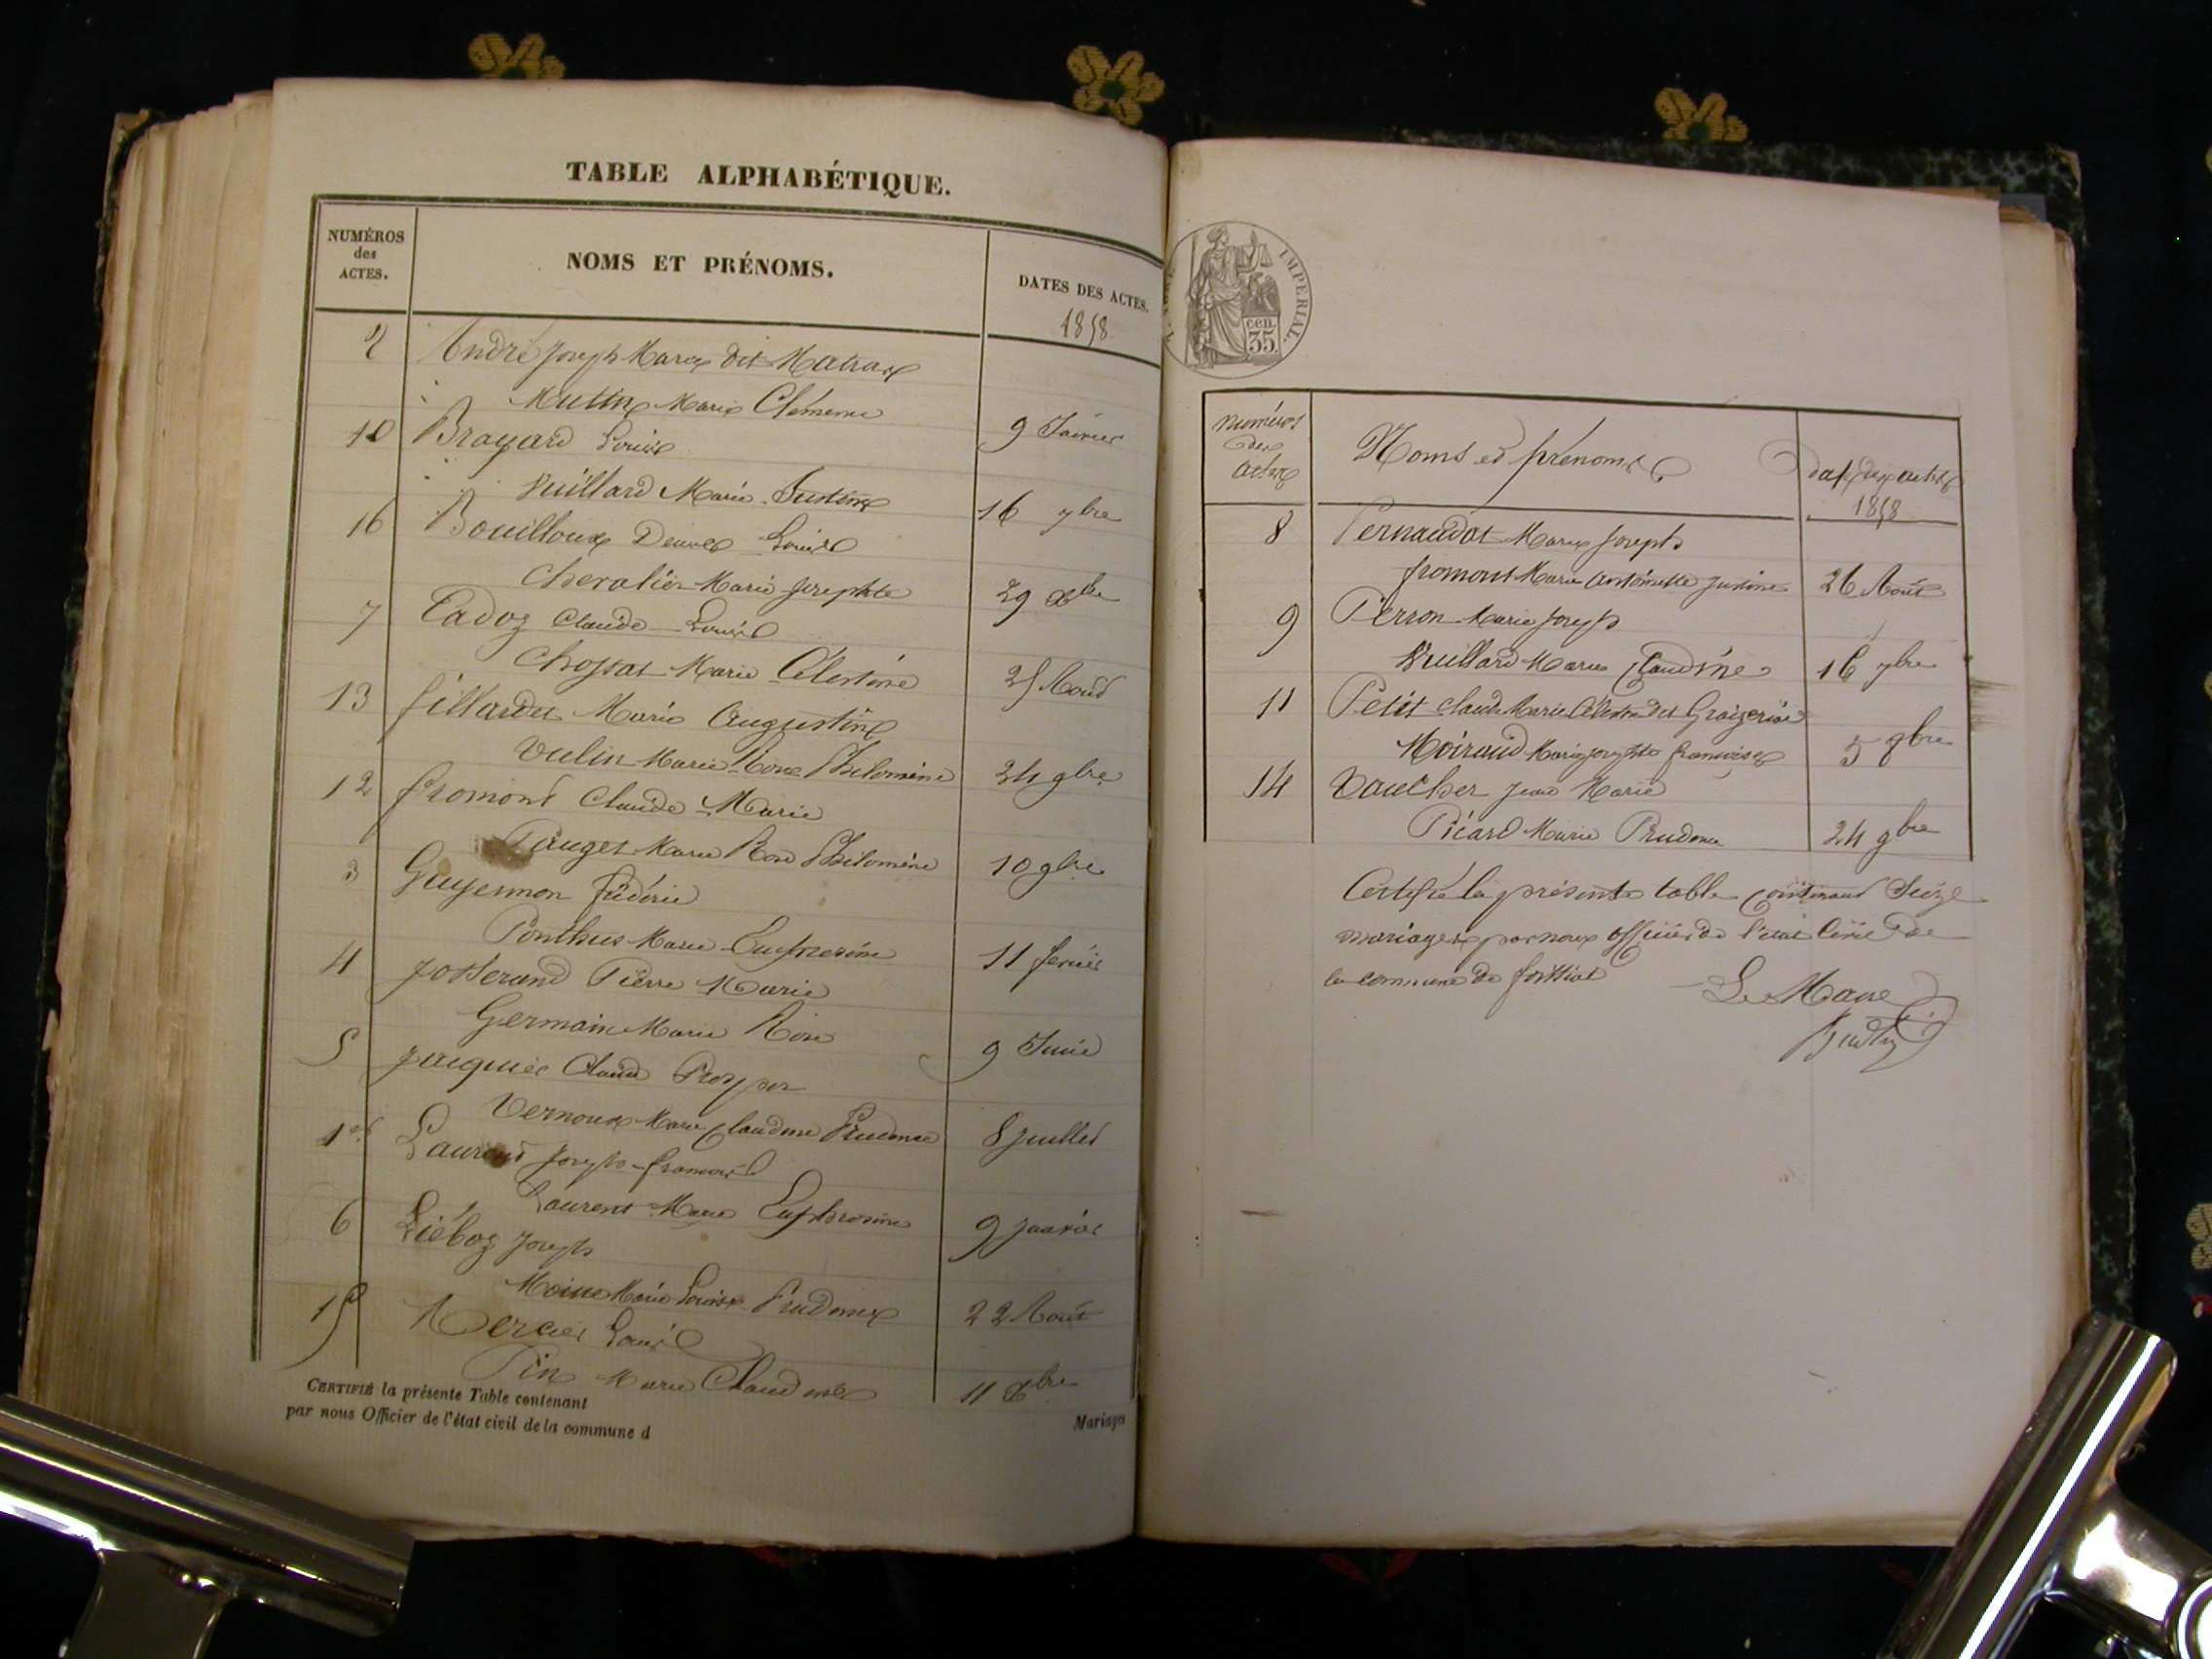 TABLE ALPHABÉTIQUE.
NUMÉROS
des
ACTES.
NOMS ET PRÉNOMS.
DATES DES ACTES.
1858
2 André Joseph Marie dit Matrax
Mutin Marie Clémence 9 Février
10 Brayard Louis
Vuillard Marie Justine 16 7bre
16 Bouilloux Louis
Chevalier Marie Josephte 29 Xbre
7 Cadoz Claude Louis
Chossat Marie Célestine 25 Août
13 fillardet Marie Augustin
Vulin Marie Rose Philomène 24 9bre
12 fromont Claude Marie
Pauget Marie Rose Philomène 10 9bre
3 Guyennon frédéric
Ponthus Marie 11 février
4 Josserand Pierre Marie
Germain Marie Rose 9 Juin
5 Jacquier Claude Prosper
Vernoux Marie Claudine Prudence 8 Juillet
1er Laurent Joseph françois
Laurent Marie Euphrosine 9 Janvier
6 Liéboz Joseph
Moine Marie Louise Prudence 22 Août
15 Mercier Louis
Pin Marie Claudine 11 Xbre
CERTIFIÉ la présente Table contenant
par nous Officier de l'état civil de la commune d
Mariages
IMPERIAL.
cen.
35.
Numéros
des
actes
Noms et prénoms
dates des actes
1858
8 Pernaudat Marie Joseph
fromont Marie Antoinette Justine 26 Août
9 Perron Marie Joseph
Vuillard Marie Claudine 16 7bre
11 Petit Claude Marie Célestin dit
Moiraud Marie Josephte françoise 5 9bre
14 Vaucher Jean Marie
Picard Marie Prudence 24 9bre
Certifié la présente table contenant Seize
mariages par nous officier de l'état Civil de
la commune de
Le Maire